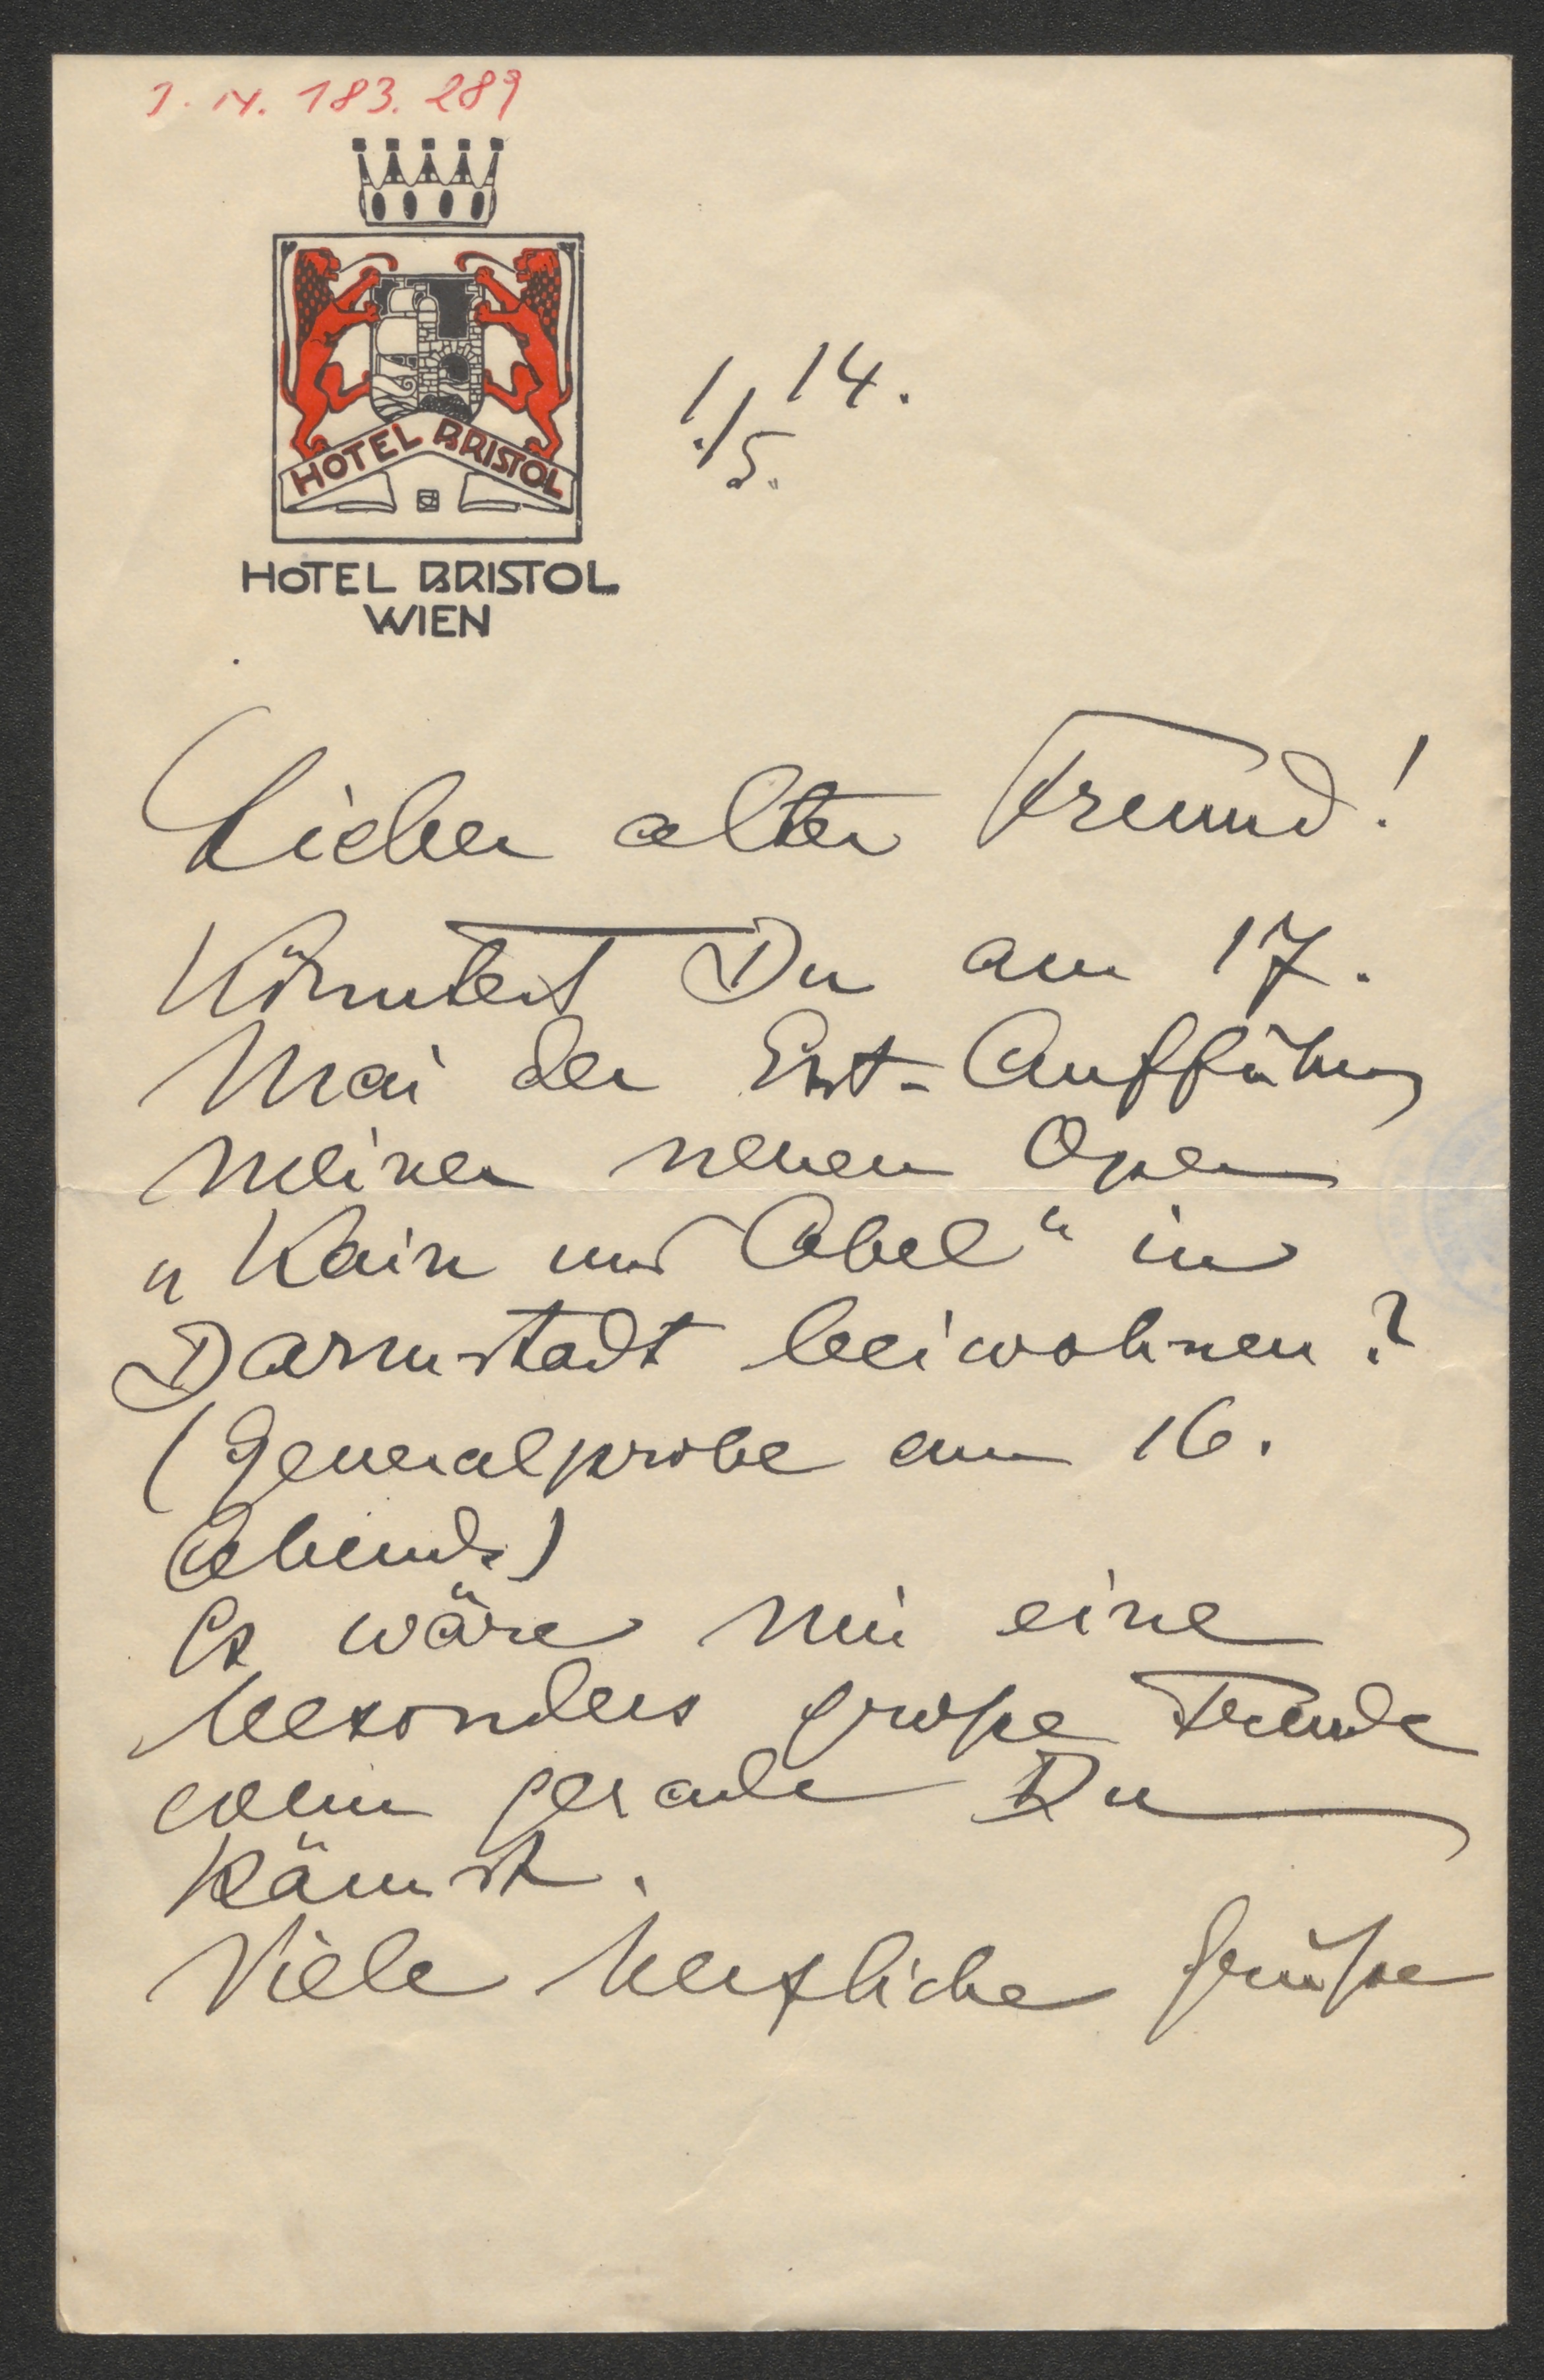 I. N. 183.289
HOTEL BRISTOL
HOTEL BRISTOL
WIEN
1./5. 14.
Lieber alter Freund!
Könntest Du am 17.
Mai der Erst-Aufführung
meiner neuen Oper
„Kain und Abel“ in
Darmstadt beiwohnen?
(Generalprobe am 16.
Abends)
Es wäre mir eine
besonders große Freude
wenn gerade Du
kämst.
Viele herzliche Grüße